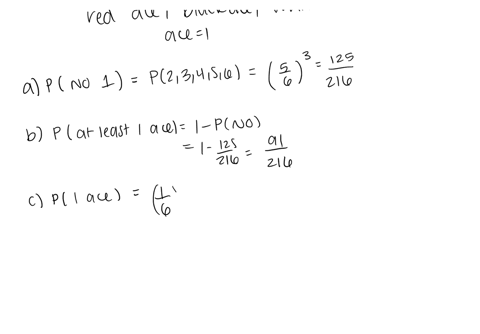 red ace,
ace=1
a) P(NO 1) = P(2,3,4,5,6) = (5/6)^3 = 125/216
b) P(at least 1 ace) = 1-P(NO)
= 1- 125/216 = 91/216
c) P(1 ace) = (1/6